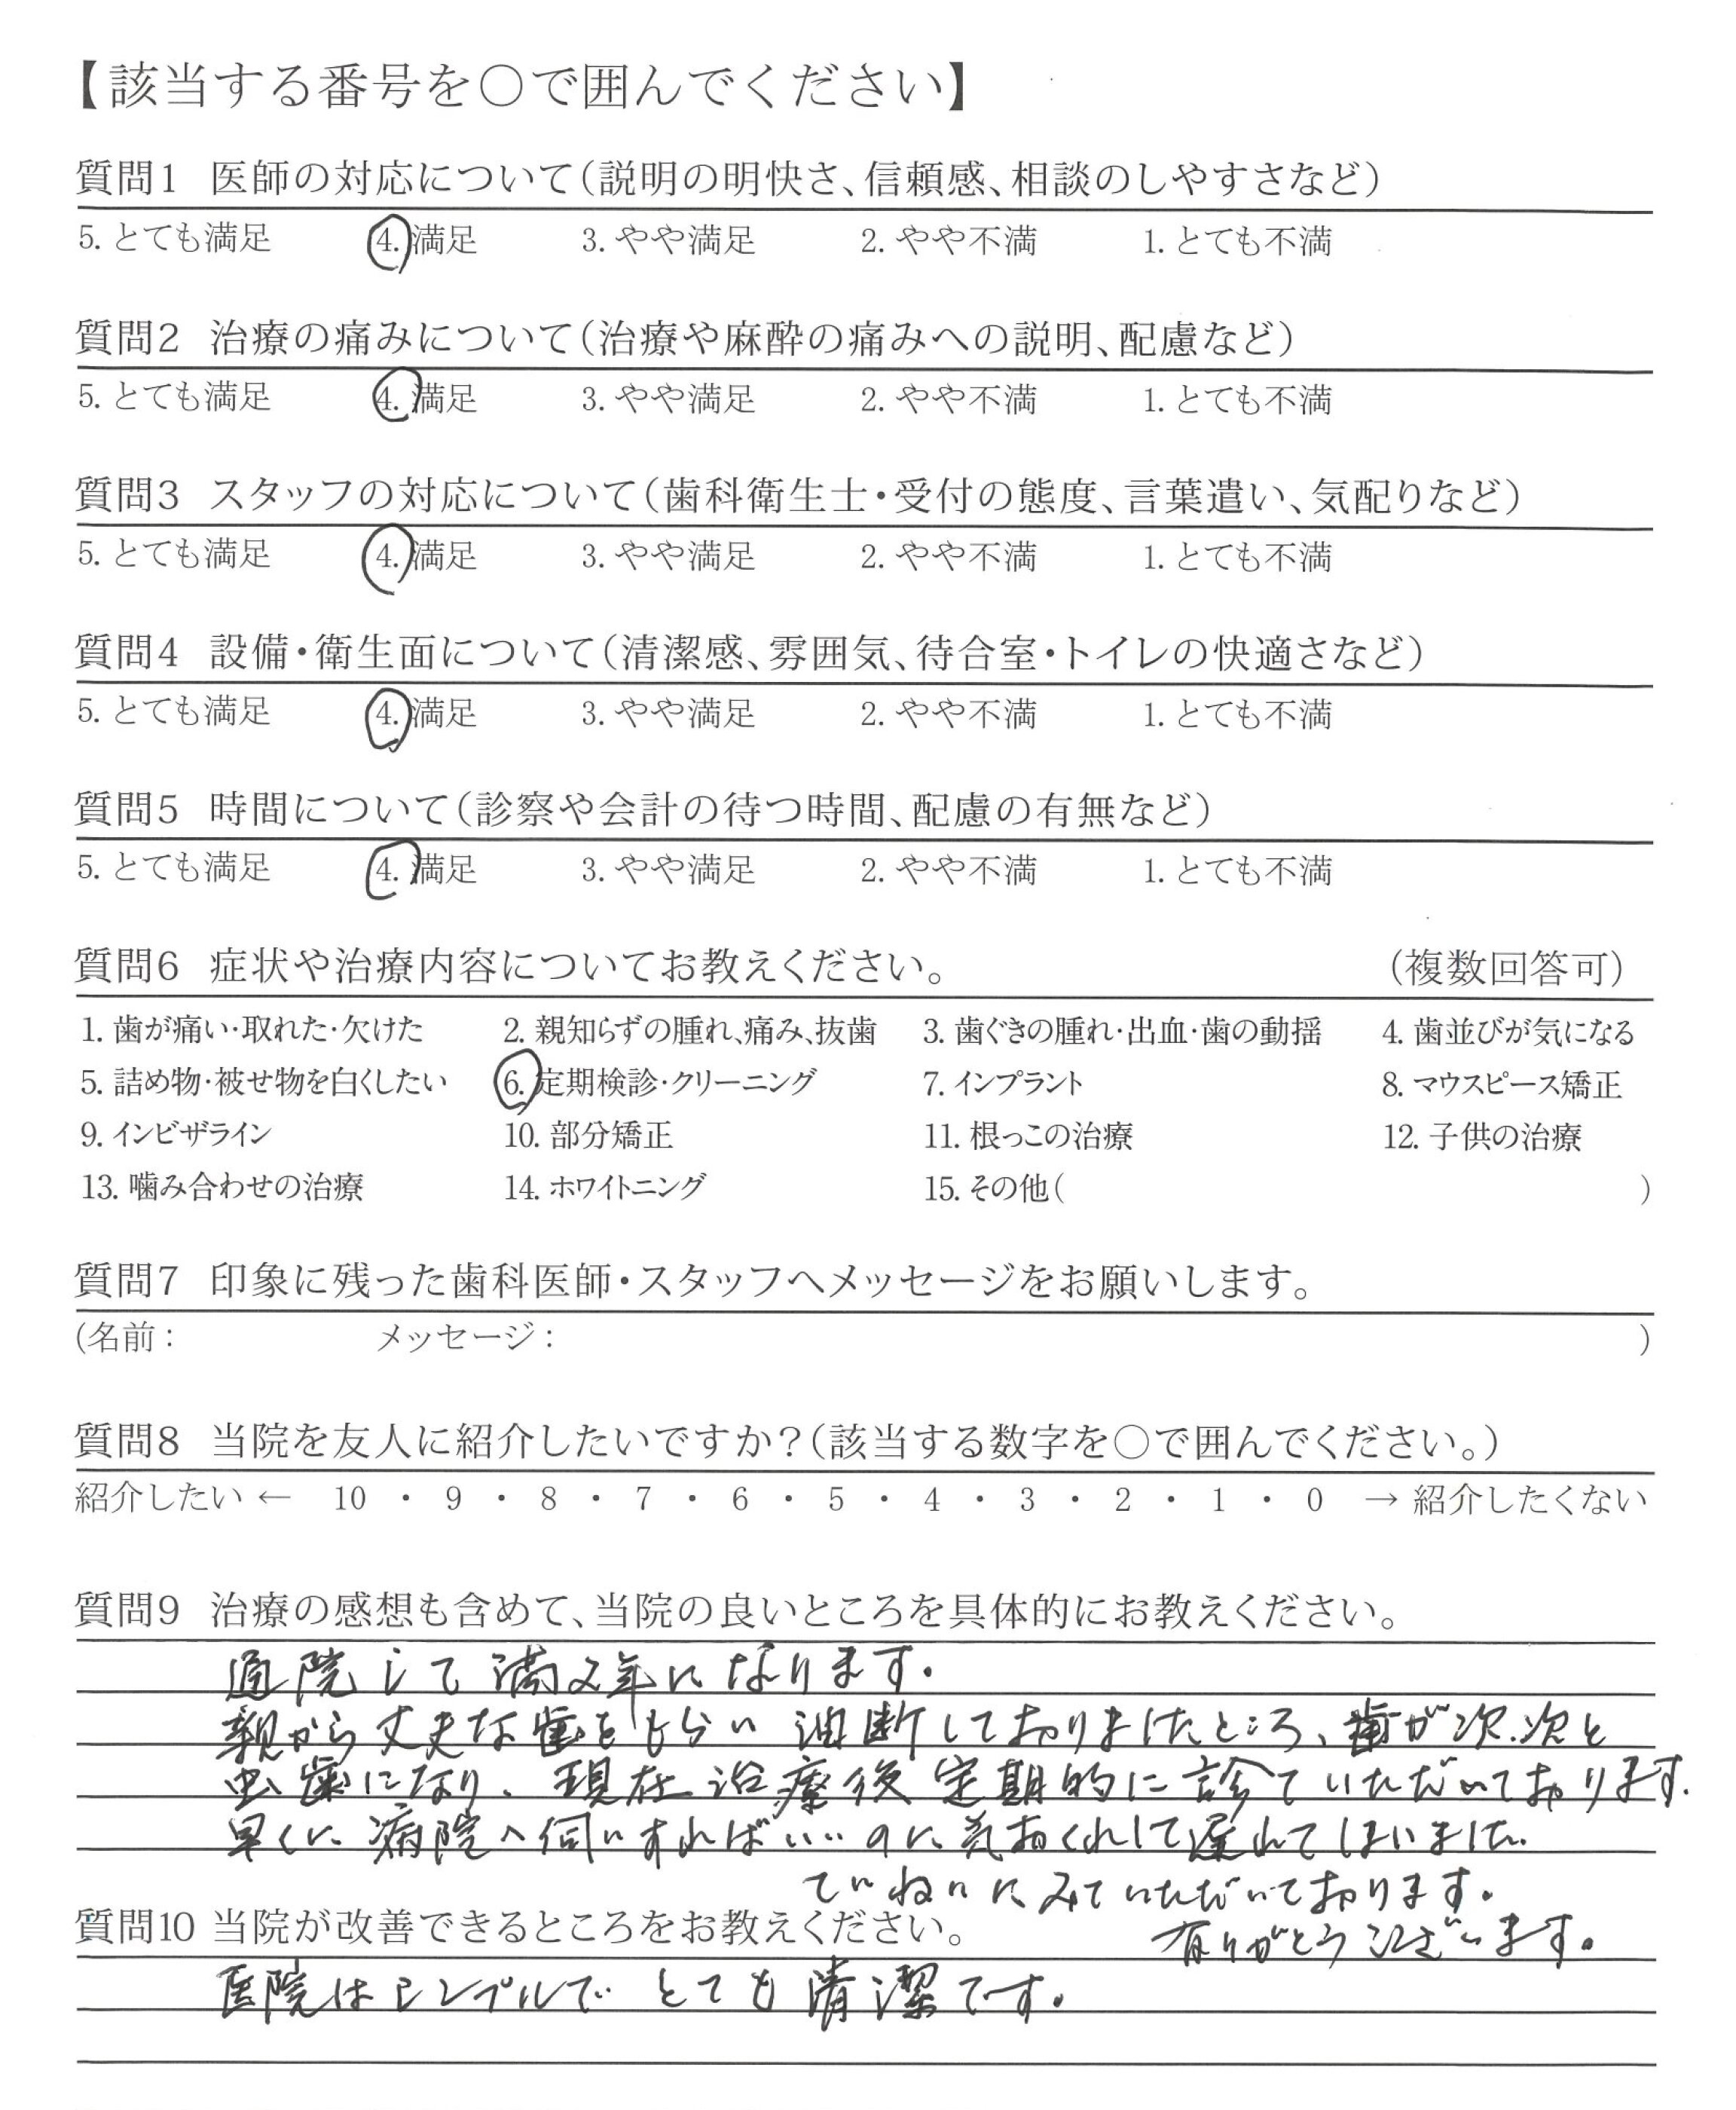 【該当する番号を○で囲んでください】
質問1 医師の対応について(説明の明快さ、信頼感、相談のしやすさなど)
5. とても満足 4. 満足 3. やや満足 2. やや不満 1. とても不満
質問2 治療の痛みについて(治療や麻酔の痛みへの説明、配慮など)
5. とても満足 4. 満足 3. やや満足 2. やや不満 1. とても不満
質問3 スタッフの対応について(歯科衛生士・受付の態度、言葉遣い、気配りなど)
5. とても満足 4. 満足 3. やや満足 2. やや不満 1. とても不満
質問4 設備・衛生面について(清潔感、雰囲気、待合室・トイレの快適さなど)
5. とても満足 4. 満足 3. やや満足 2. やや不満 1. とても不満
質問5 時間について(診察や会計の待つ時間、配慮の有無など)
5. とても満足 4. 満足 3. やや満足 2. やや不満 1. とても不満
質問6 症状や治療内容についてお教えください。 (複数回答可)
1. 歯が痛い・取れた・欠けた 2. 親知らずの腫れ、痛み、抜歯 3. 歯ぐきの腫れ・出血・歯の動揺 4. 歯並びが気になる
5. 詰め物・被せ物を白くしたい 6. 定期検診・クリーニング 7. インプラント 8. マウスピース矯正
9. インビザライン 10. 部分矯正 11. 根っこの治療 12. 子供の治療
13. 噛み合わせの治療 14. ホワイトニング 15. その他( )
質問7 印象に残った歯科医師・スタッフへメッセージをお願いします。
(名前: メッセージ: )
質問8 当院を友人に紹介したいですか?(該当する数字を○で囲んでください。)
紹介したい ← 10 ・ 9 ・ 8 ・ 7 ・ 6 ・ 5 ・ 4 ・ 3 ・ 2 ・ 1 ・ 0 → 紹介したくない
質問9 治療の感想も含めて、当院の良いところを具体的にお教えください。
通院して満2年になります。
親から丈夫な歯をもらい油断しておりましたところ、歯が次次と
虫歯になり、現在治療後定期的に診ていただいております。
早くに病院へ伺いすればいいのに気おくれして遅れてしまいました。
ていねいにみていただいております。
有りがとうございます。
質問10 当院が改善できるところをお教えください。
医院はシンプルでとても清潔です。